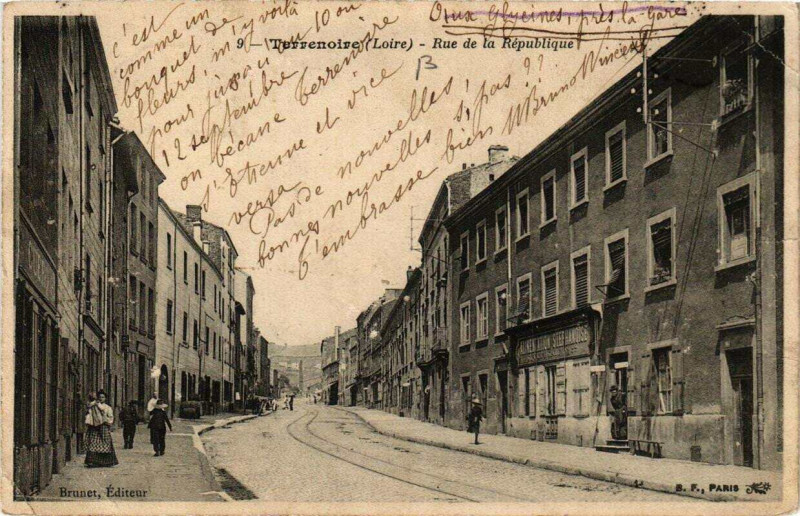 Aux Glycines près la Gare
9 - Terrenoire (Loire) - Rue de la République
B
c'est
comme un
bouquet de
fleurs, m'y voilà
pour jusqu'au 10 ou
12 septembre
on bécane Terrenoire
St Etienne et vice
versa
Pas de nouvelles,
bonnes nouvelles, s'pas ??
t'embrasse bien
Brunet, Éditeur
B. F., PARIS